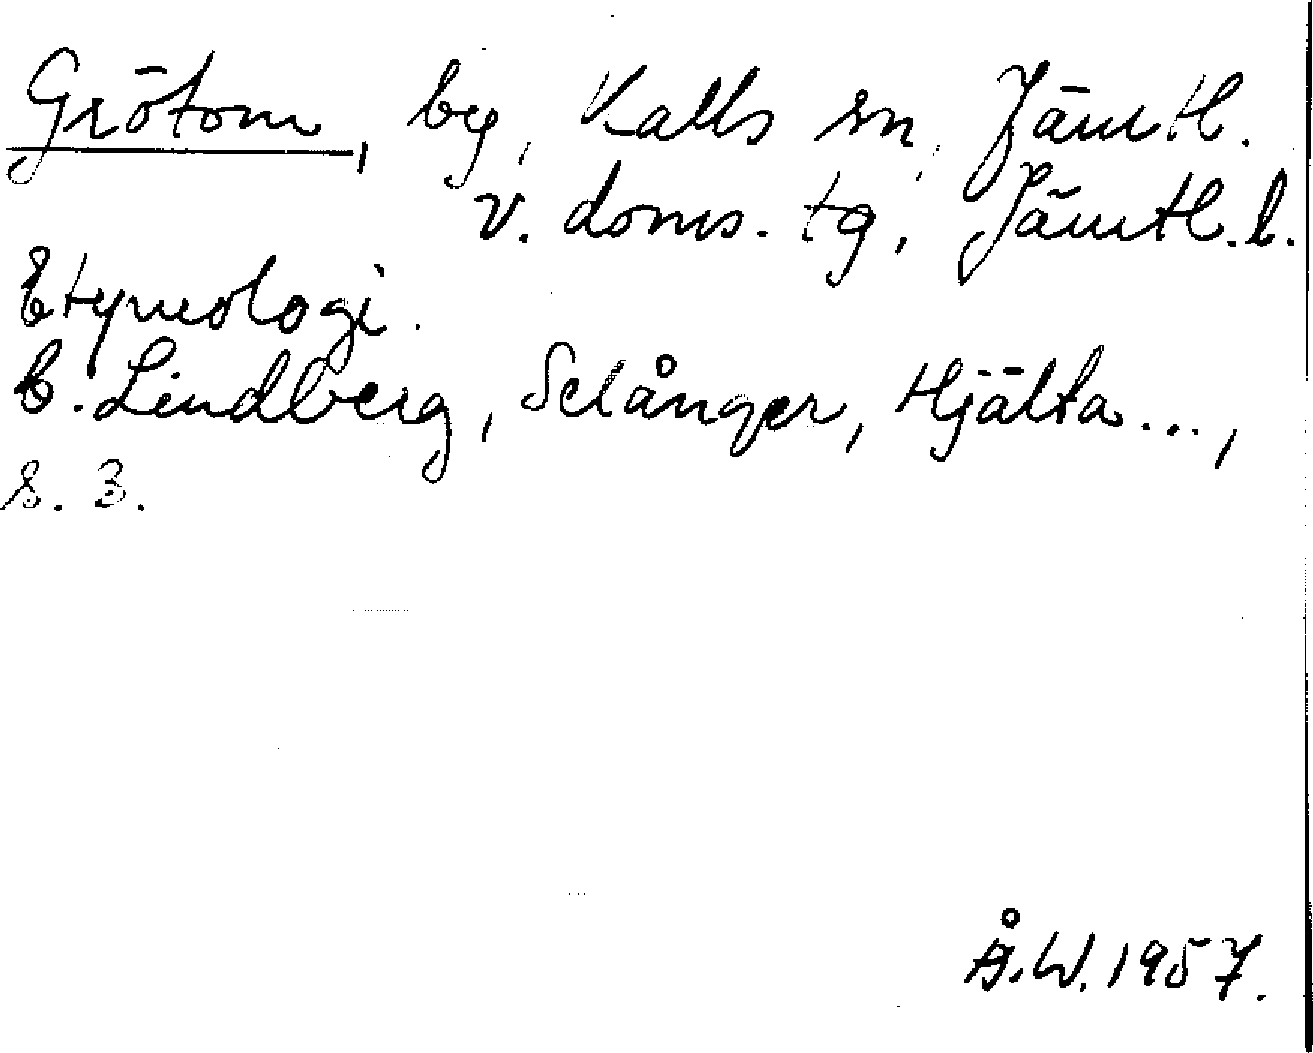 Grötom, by, Kalls sn, Jämtl.
v. doms. tg, Jämtl. l.
Etymologi.
C. Lindberg, Selånger, Hjälta...,
s. 3.
Å.W. 1957.